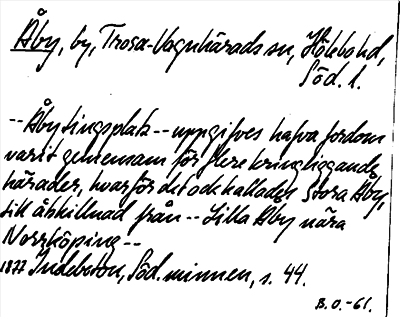 Åby, by, Trosa-Vagnhärads sn, Hölebo hd,
Söd. l.
-- Åby tingsplats -- uppgifves hafva fordom
varit gemensam för flere kringliggande
härader, hvarför det ock kallades Stora Åby,
till åtskillnad från -- Lilla Åby nära
Norrköping --
1877 Indebetou, Söd. minnen, s. 44.
B.O.-61.